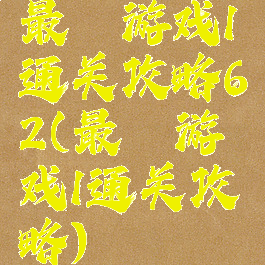 最 游戏1
通关攻略6
2(最 游
戏1通关攻
略)